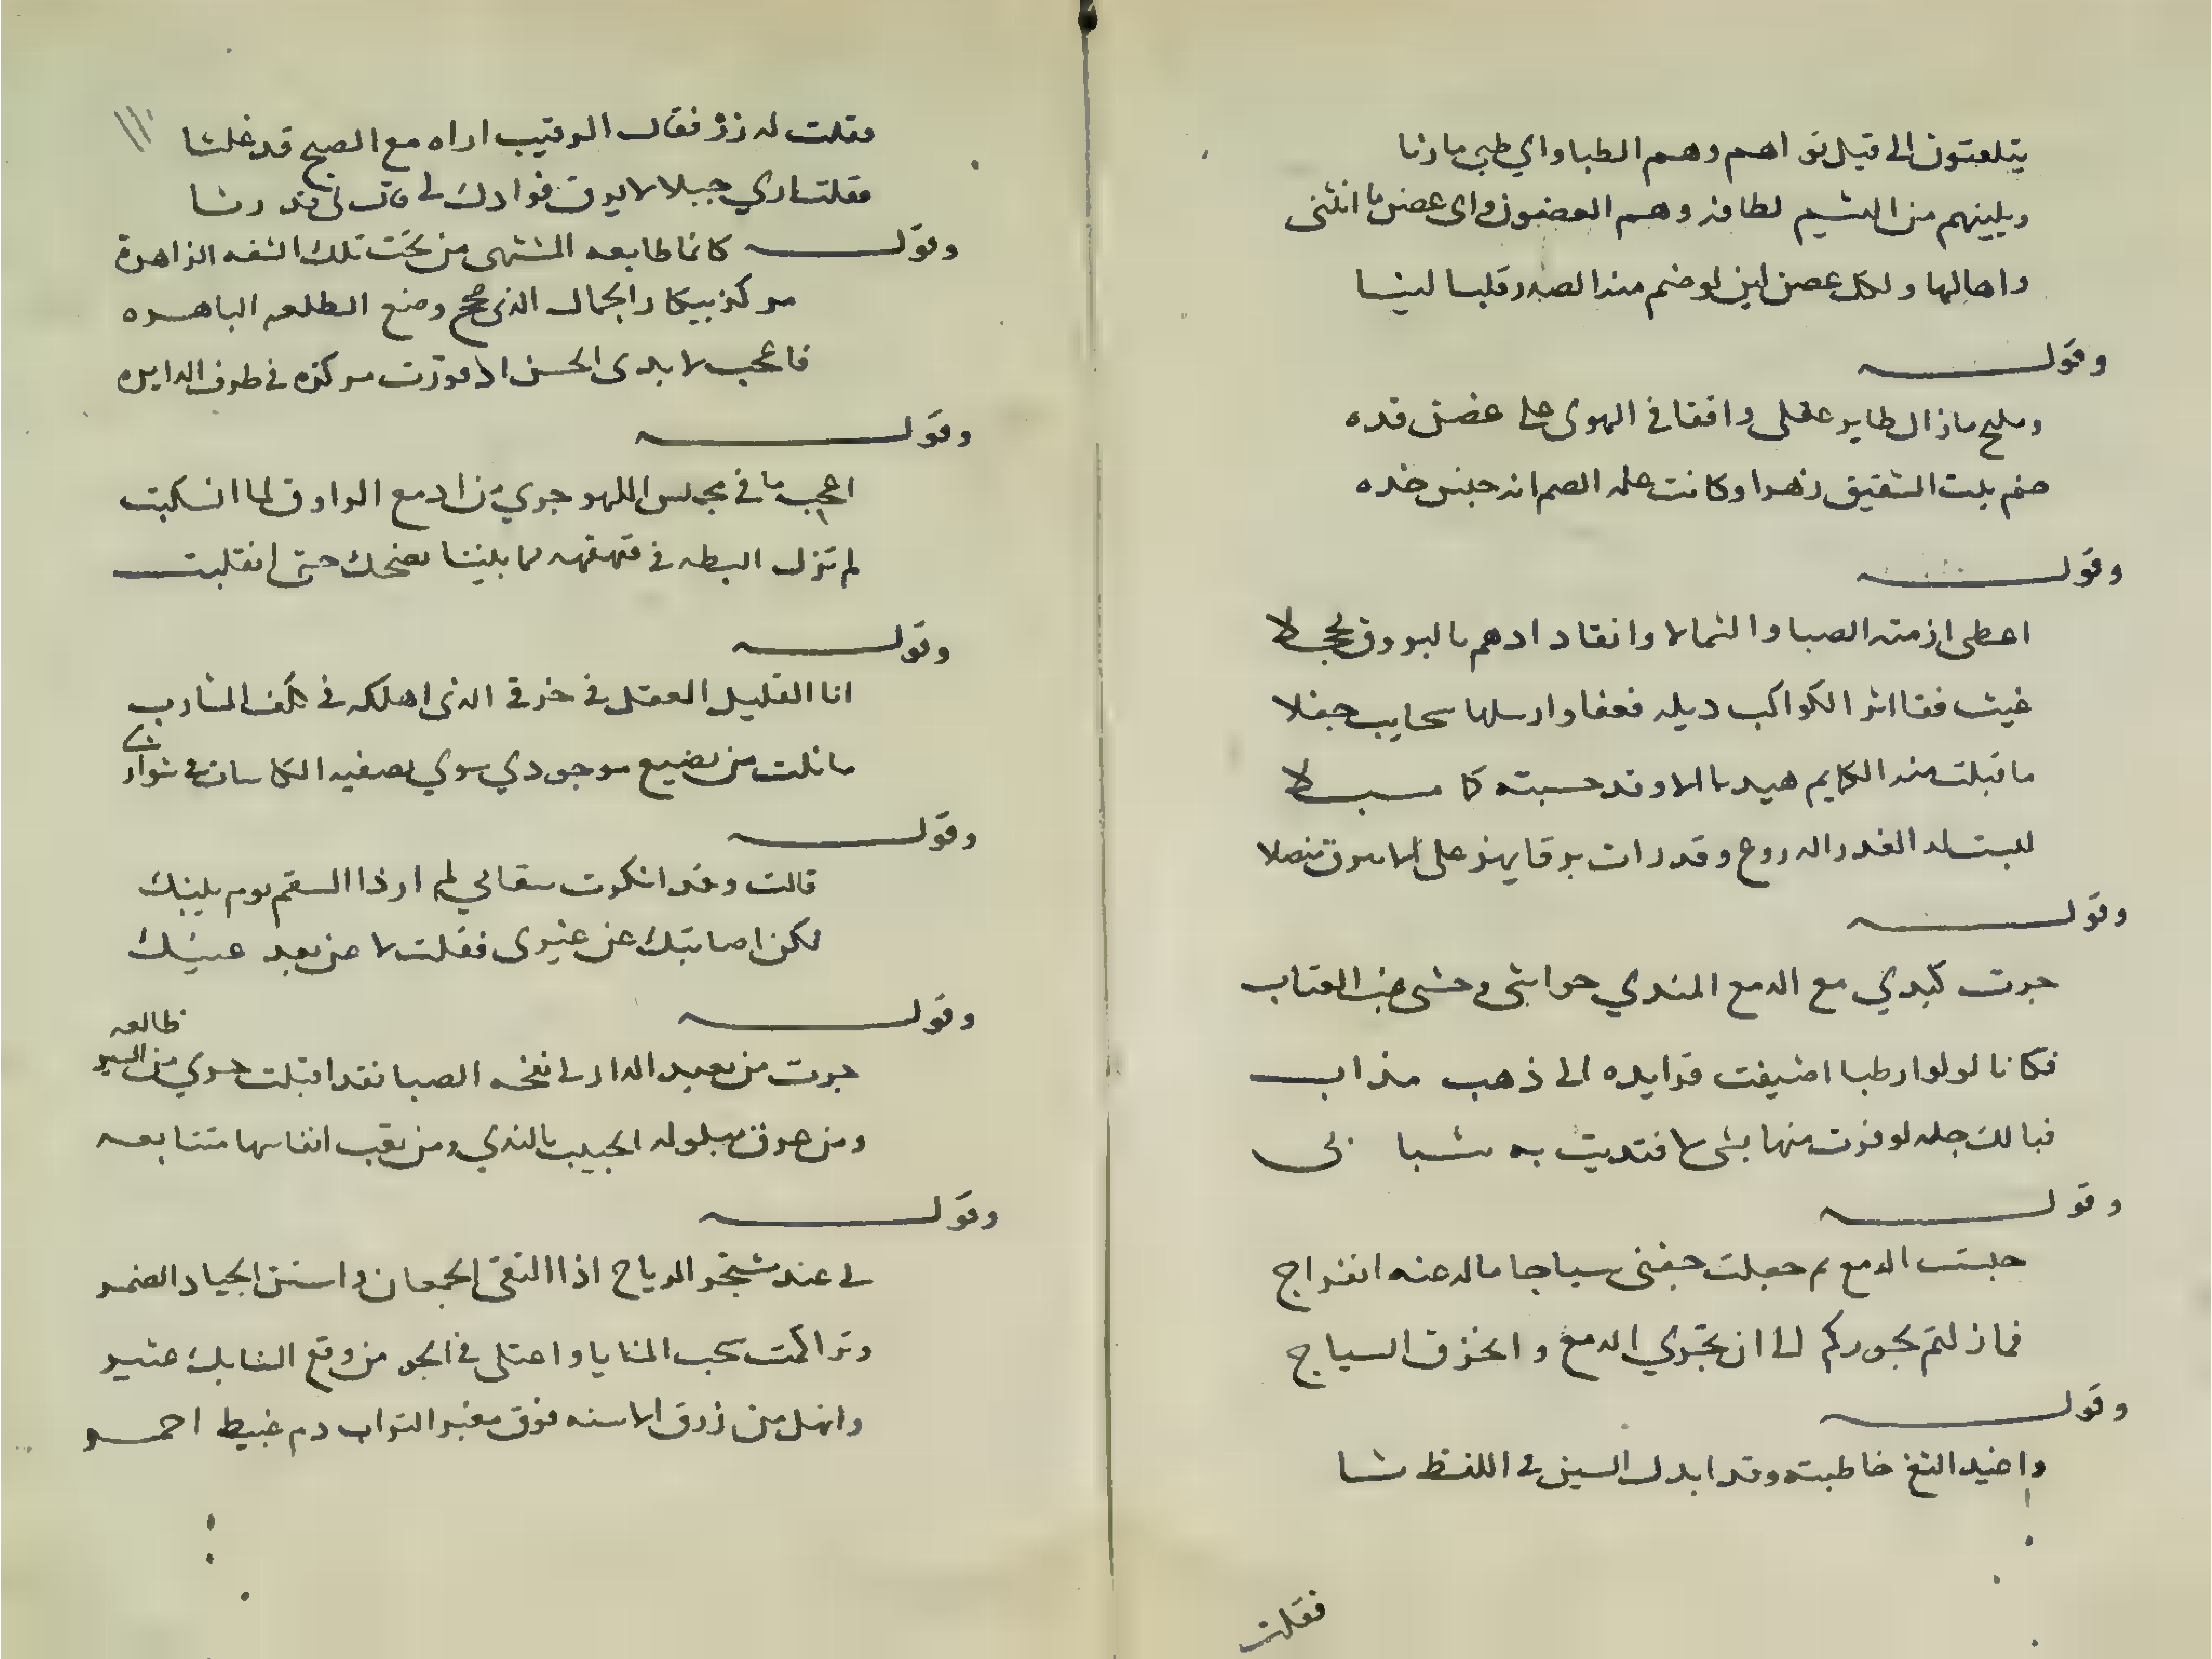 يتلعتون الى قيل نو اهم وهم الطبا واي طبي ما رنا
ويلينهم من النسيم لطافة وهم العضون واى عصن ما انثنى
واهالها ولكل عصن لين لو ضم منه الصدر قلبا لينا
وقوله
ومليح ما زال طاير عقلى واقفا في الهوى على غصن قده
صنم بلت الشقيق زهرا وكانت علة الصم انه جنس خده
وقوله
اعطى ازمته الصبا والشمالا وانقاد ادهم بالبروق محجلا
غيث فقا اثر الكواكب ديله فعفا وارسلها سحايب جفلا
ما قبلت منه الكايم هيدبا الا وقد حسبته كا مسبلا
لبست له الغدر الدروع وقد رات برقا يهز على الابرق منصلا
وقوله
جرت كبدي مع الدمع المندي حواشى وحشى العتاب
فكانا لولوا رطبا اضيفت فرايده الى ذهب مذاب
فيالك جلة لو فزت منها بشى لافتديت به شبابى
وقوله
حبست الدمع ثم جعلت جفنى سياجا ماله عنه انفراج
فما زلتم بجوركم الى ان تجري الدمع وانخرق السياج
وقوله
واغيد النغ خاطبته وقد ابدل السين في اللفظ شا
فقلت
فقلت له زر فقال الرقيب اراه مع الصبح قد غلشا
فقلت ارى جبلا لا يرق فوادك لى قال لى قد رشا
وقوله كانما طابعه المشتهى من تحت تلك الشفه الزاهرة
مركز بيكار الجمال الذى صح وضع الطلعه الباهره
فاعجب لابدى الحسن اذ قورت مركزه في طرف الدايره
وقوله
اعجب ما في مجلس اللهو جرى من ادمع الراوق لما انسكبت
لم تزل البطه في قهقهه ما بيننا تضحك حتى انقلبت
وقوله
انا القليل العقل في خرقي الذى اهلكه في كلف المشارب
ما نلت من تضييع موجودي سوي تصفيه الكاسات في شواربى
وقوله
قالت وقد انكرت سقامي لم ار ذا السقم يوم بينك
لكن اصابتك عن غيرى فقلت لا عن بعد عينك
وقوله
جرت من بعيد الدار لى نفحه الصبا فقد اقبلت حسري من السير ظالعه
ومن عرق مبلولة الجيب بالندي ومن تعب انفاسها متتابعه
وقوله
لى عند مشتجر الرياح اذا التقى الجمعان واستن الجياد الضمر
وتراكمت سحب المنايا واعتلى في الجو من وقع السنابك عثير
وانهل من زرق الاسنه فوق مغبر التراب دم غبيط احمر